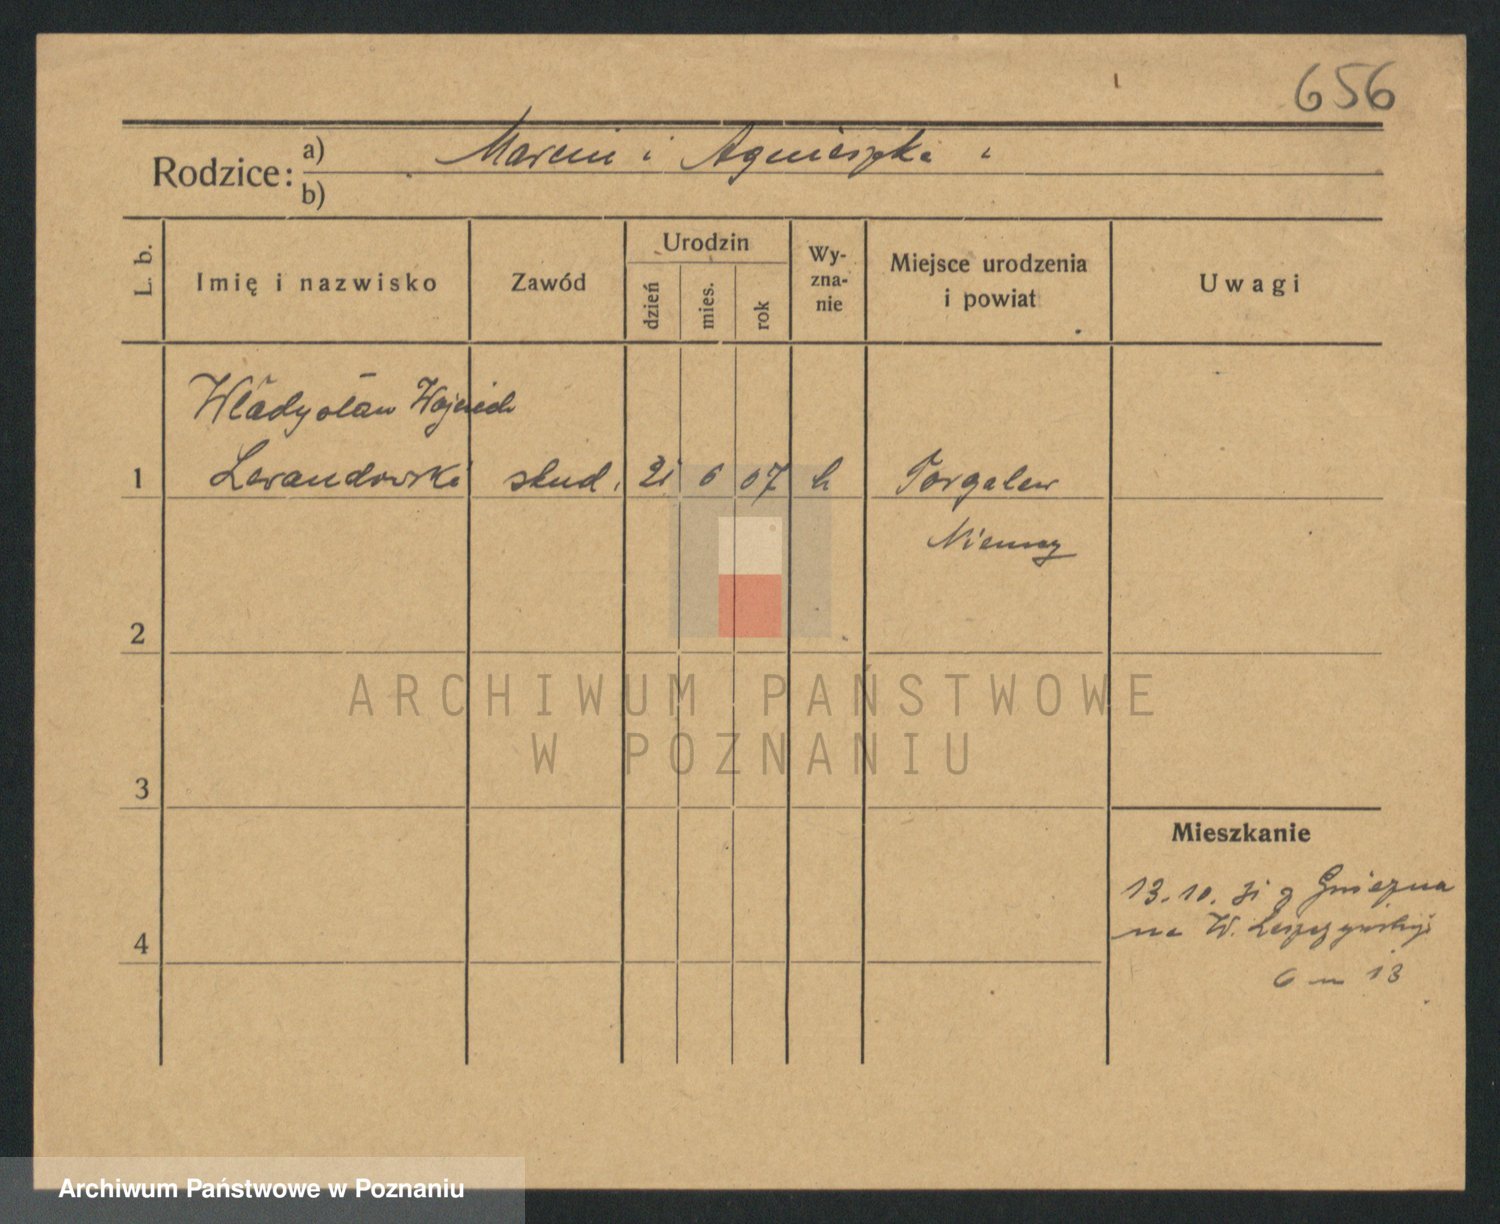 656
Rodzice: a) Marcin i Agnieszka
b)
L. b.
Imię i nazwisko
Zawód
Urodzin
dzień
mies.
rok
Wy-
zna-
nie
Miejsce urodzenia
i powiat
Uwagi
Władysław Wojciech
1 Lewandowski stud. 21 6 07 k Torgelow
Niemcy
2
3
4
Mieszkanie
13. 10. 31 z Gniezna
na W. Leszczyńskiej
6 m 13
ARCHIWUM PAŃSTWOWE
W POZNANIU
Archiwum Państwowe w Poznaniu